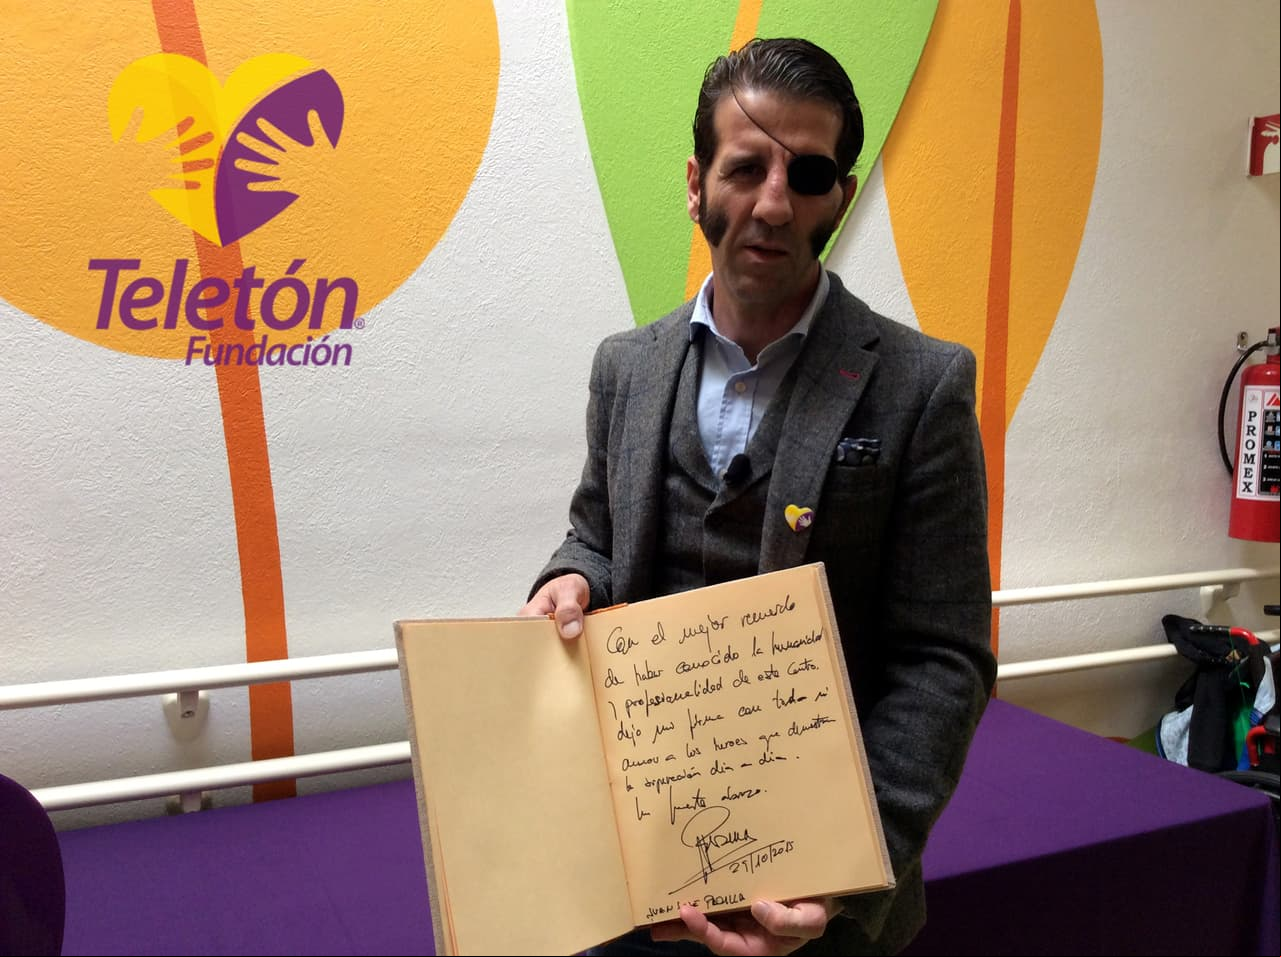 Teletón®
Fundación
PROMEX
Con el mejor recuerdo
de haber conocido la humanidad
y profesionalidad de este Centro.
dejo mi firma con todo mi
amor a los heroes que demuestran
la superación dia a dia.
Un fuerte abrazo.
PADILLA
29/10/2015
JUAN JOSE PADILLA